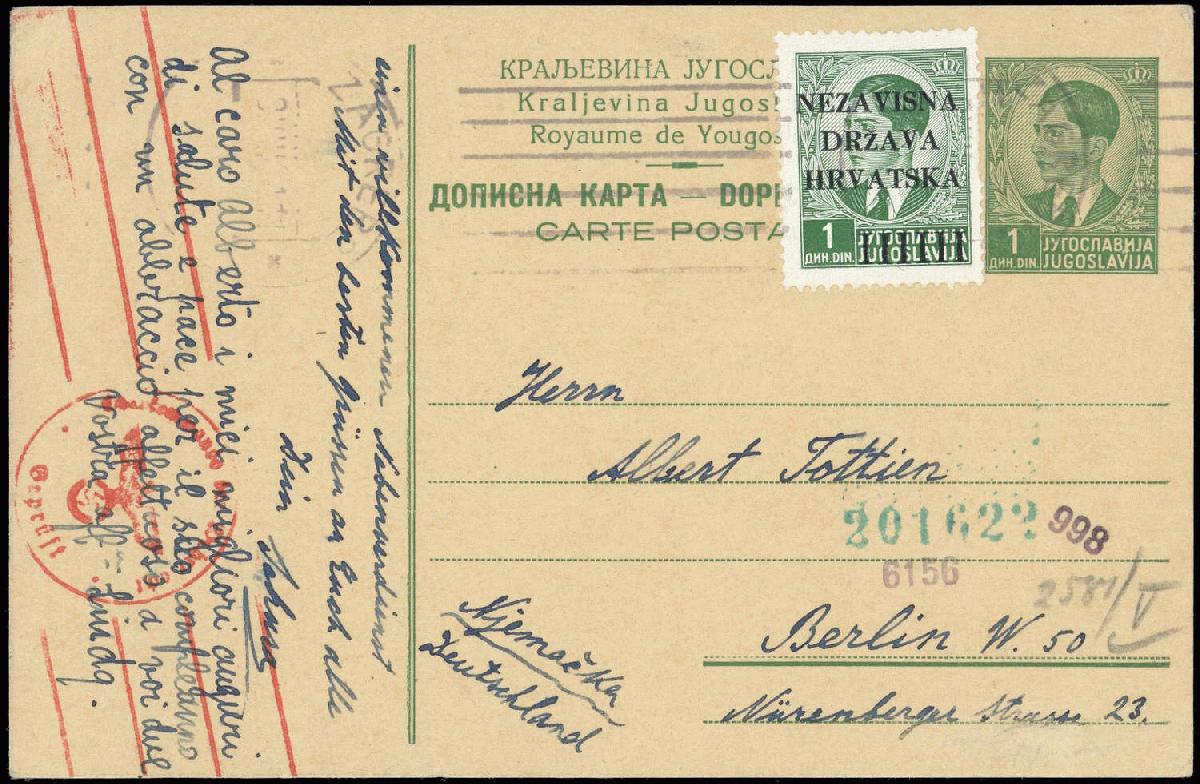 КРАЉЕВИНА ЈУГОСЛ
Kraljevina Jugos
Royaume de Yougos
ДОПИСНА КАРТА — DOP
CARTE POSTA
NEZAVISNA
DRŽAVA
HRVATSKA
1
ДИН. DIN.
1
ДИН. DIN.
ЈУГОСЛАВИЈА
JUGOSLAVIJA
Herrn
Albert Tottien
201622
998
6156
2581/V
Berlin W. 50
Nürenberger Strasse 23.
Njemačka
Deutschland
einen willkommenen Nebenverdienst.
Mit den besten Grüssen an Euch alle
Dein
Al caro alberto i miei migliori auguri
di salute e pace per il suo compleanno
con un abbraccio affettuoso a voi due
Vostra aff
Geprüft